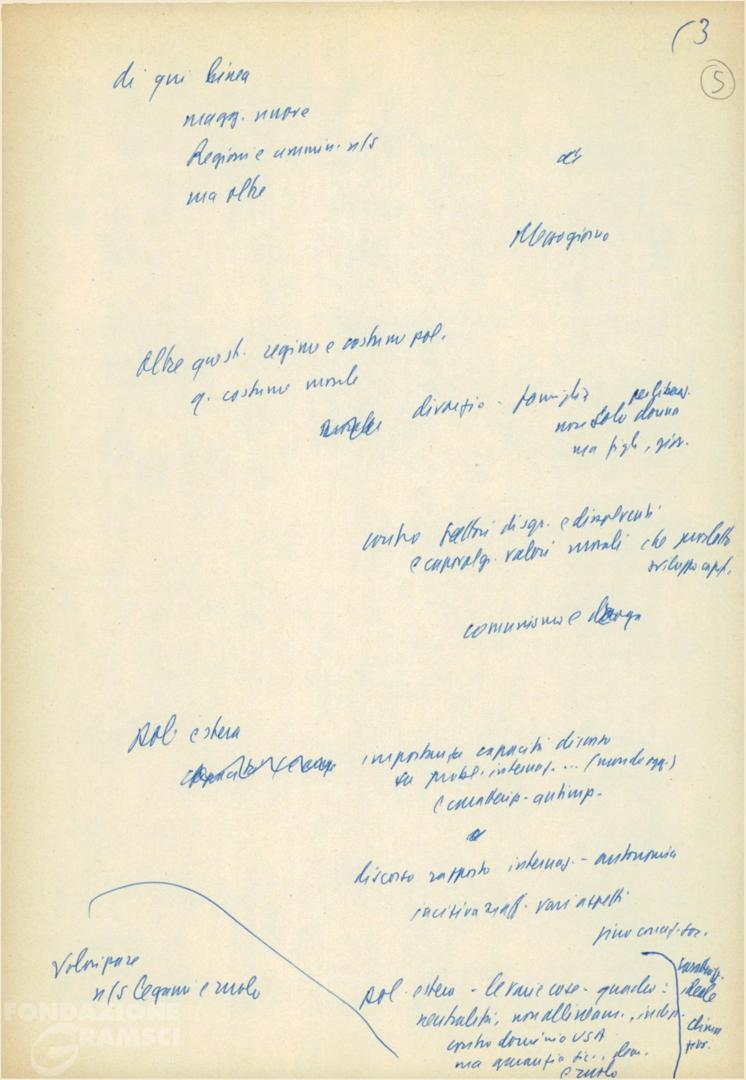 ( 3
5
di qui linea
magg. nuove
Regioni e ammin. n/s
ma oltre
Mezzogiorno
Oltre quest. regime e costume pol.
q. costume morale
divorzio - famiglia
non solo donna
ma figli, giov.
contro fattori disgr. e dissolventi
e capovolg. valori morali che
sviluppo capit.
comunismo e droga
Pol. estera
importanza capacità discorso
su probl. internaz. ... (mondo ogg.)
e caratteriz. antimp.
discorso rapporto internaz. - autonomia
incisiva riaff. vari aspetti
fino
Valorizzare
n/s legami e ruolo
pol. estera - le varie cose - quadro:
neutralità, non allineam., indip.
contro dominio USA
ma garanzia sic., dem.
e ruolo
ideale
FONDAZIONE
GRAMSCI